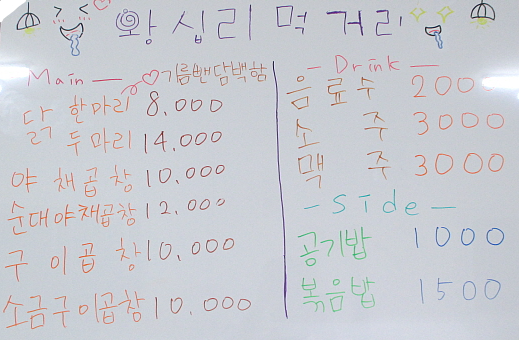 왕십리 먹거리
Main
기름뺀담백함
닭 한마리 8,000
두마리 14,000
야채곱창 10,000
순대야채곱창 12,000
구이곱창 10,000
소금구이곱창 10,000
- Drink -
음료수 2000
소주 3000
맥주 3000
- Side -
공기밥 1000
볶음밥 1500